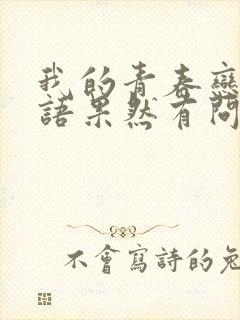 我的青春戀
語果然有問
不會寫詩的兔